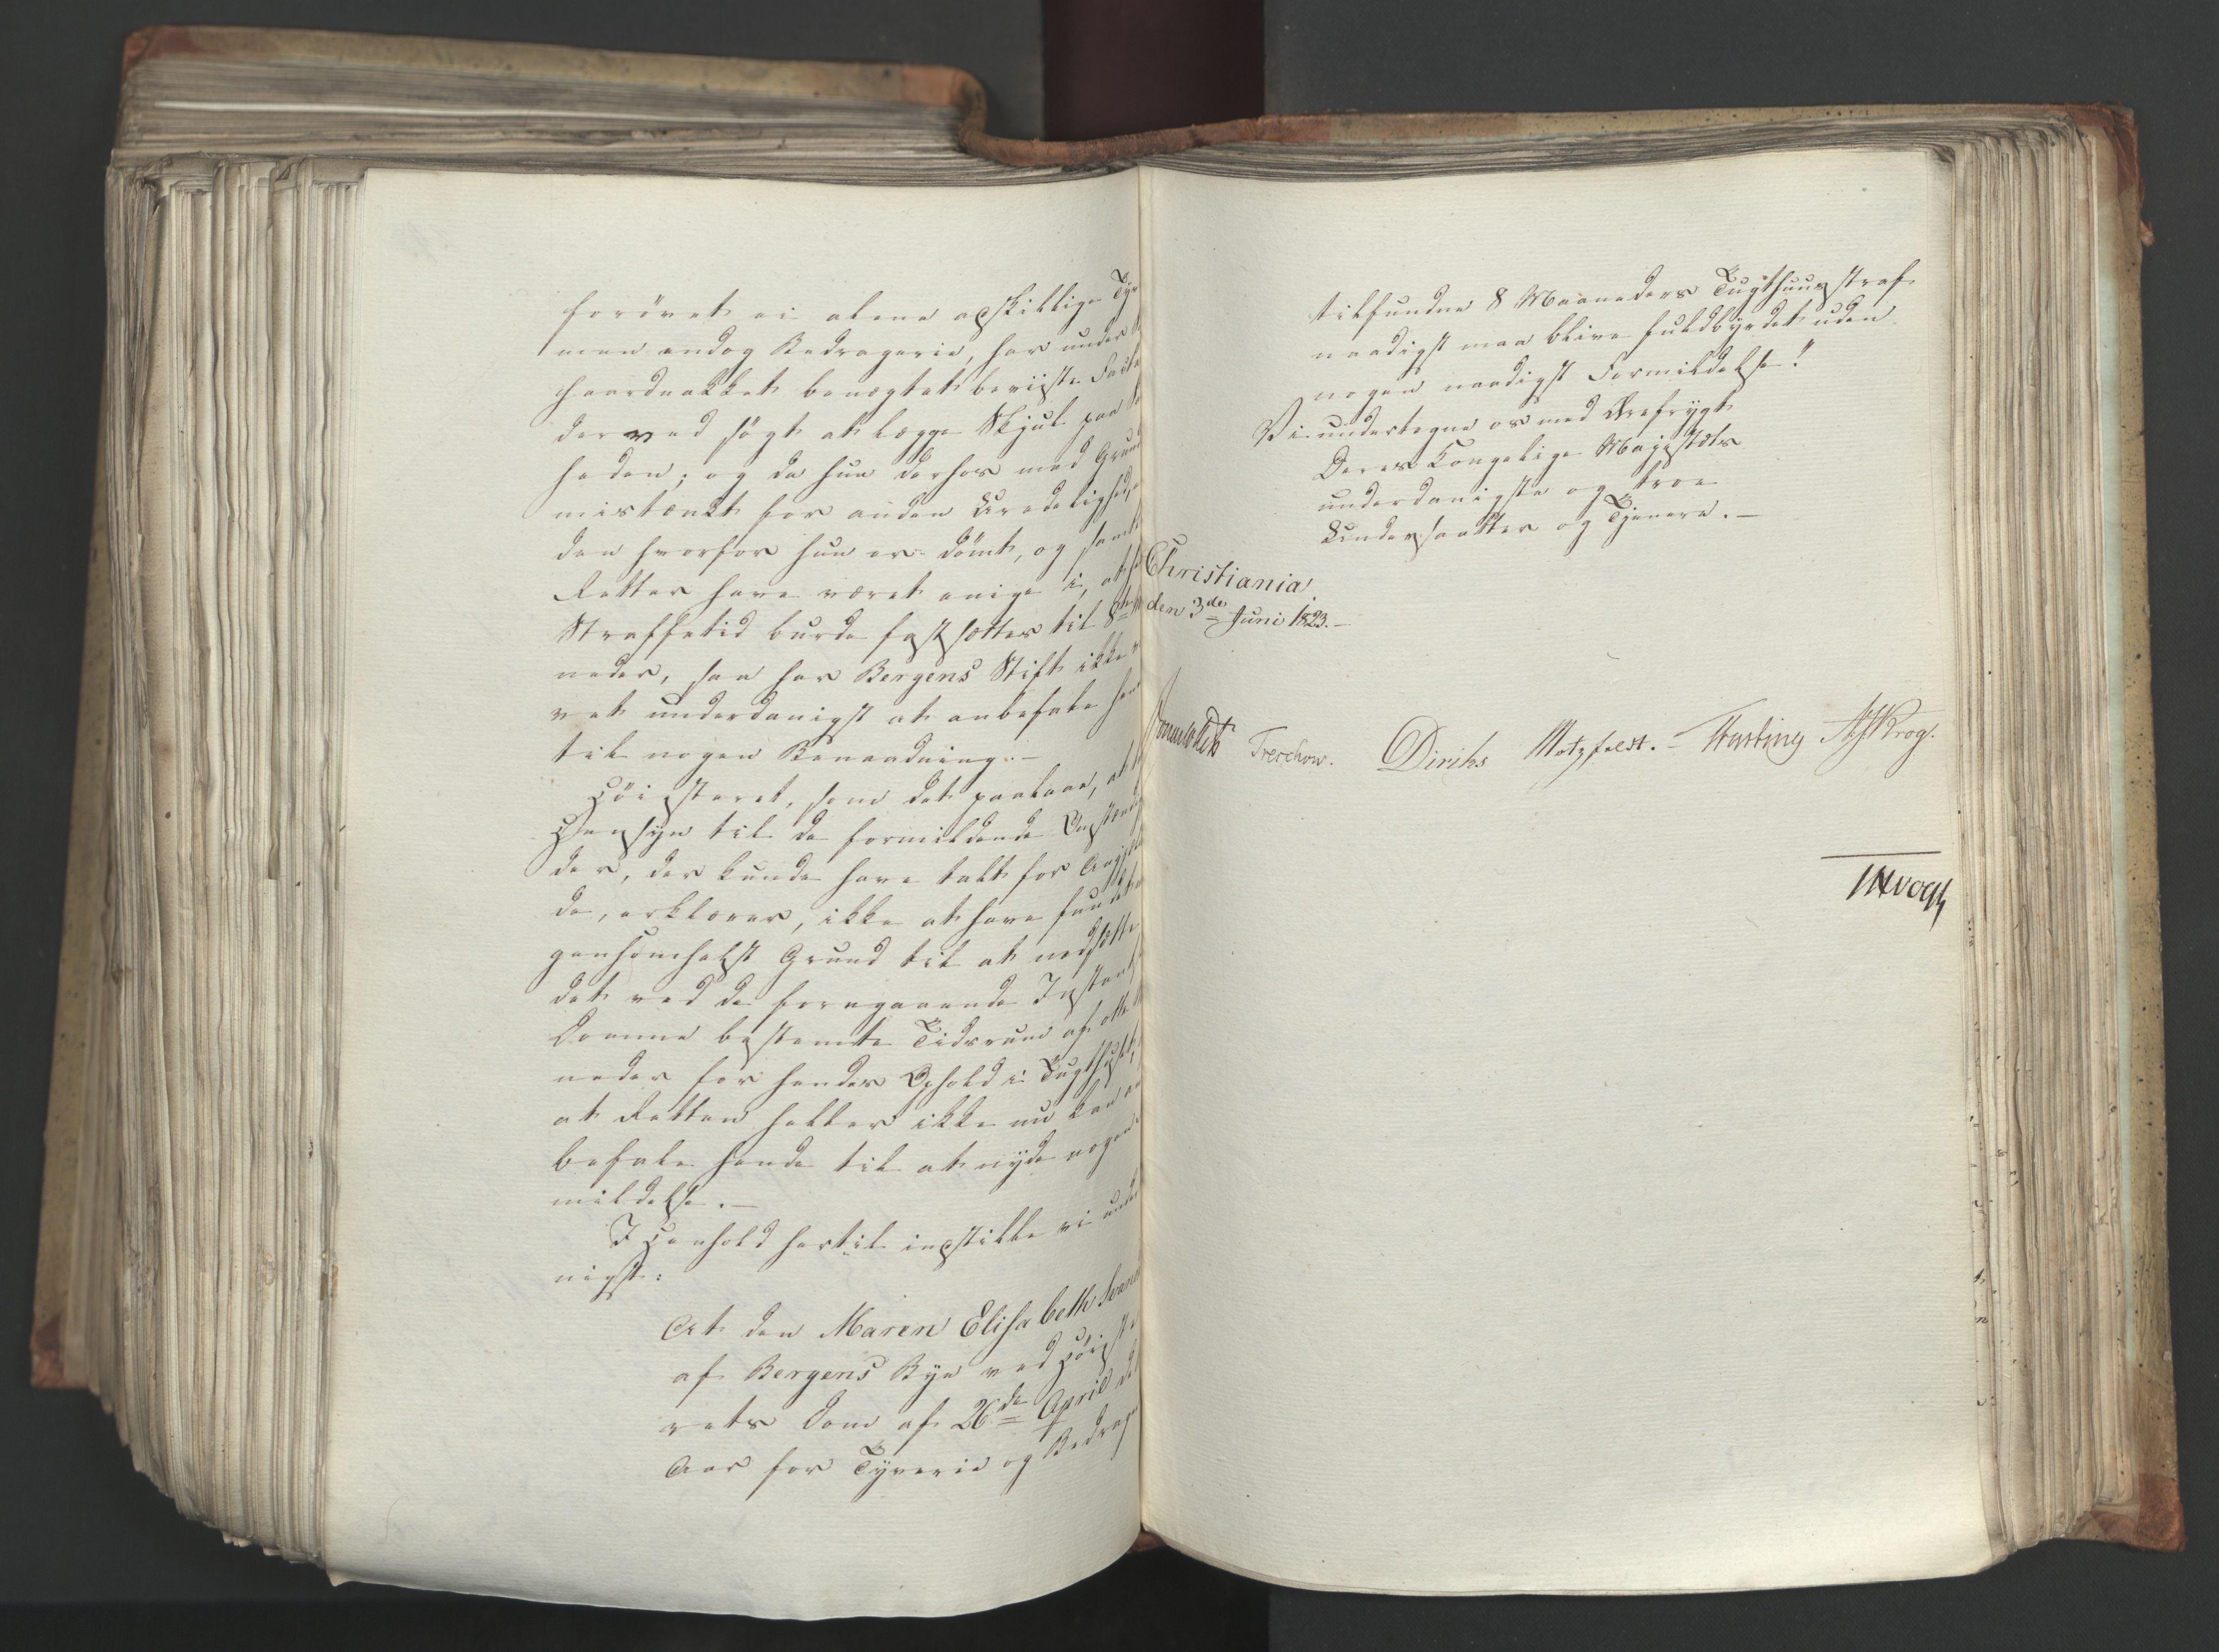 forövet ei alene adskillige Tyv
men endog Bedragerie, har under
haardnakket benægtet beviiste Facta
derved søgt at lægge Skjul paa
heden; og da hun derhos med Grund
mistænkt for anden Uredelighed,
den hvorfor hun er dömt, og samt
Retter have været enige i, at
Straffetid burde fastsættes til 8te
neder, saa har Bergens Stift ikke
vet underdanigst at anbefale hen
til nogen Benaadning.-
Höiesteret, som det paalaae, at
Hensyn til de formildende Omstændig
der, der kunde have talt for Angjeld
de, erklærer, ikke at have fundet
gensomhelst Grund til at nedsætte
det ved de foregaaende Instant
Domme bestemte Tidsrum af otte
neder for hendes Ophold i Tugthuset,
at Retten heller ikke nu kan
befale hende til at nyde nogen
mildelse.-
I Henhold hertil indstille vi under
nigst:
At den Maren Elisabeth
af Bergens Bye ved Höieste
rets Dom af 26de April
Aar for Tyverie og Bedrage
tilfundne 8 Maaneders Tugthuusstraf
naadigst maa blive fuldbyrdet uden
nogen naadigst Formildelse!
Vi undertegne os med Ærefrygt
Deres Kongelige Majestæts
underdanigste og troe
Undersaatter og Tjenere.-
Christiania
den 3de Juni 1823.-
Sommerhielm Treschow. Diriks Motzfeldt.- Fasting AJKrog.
JHVogt